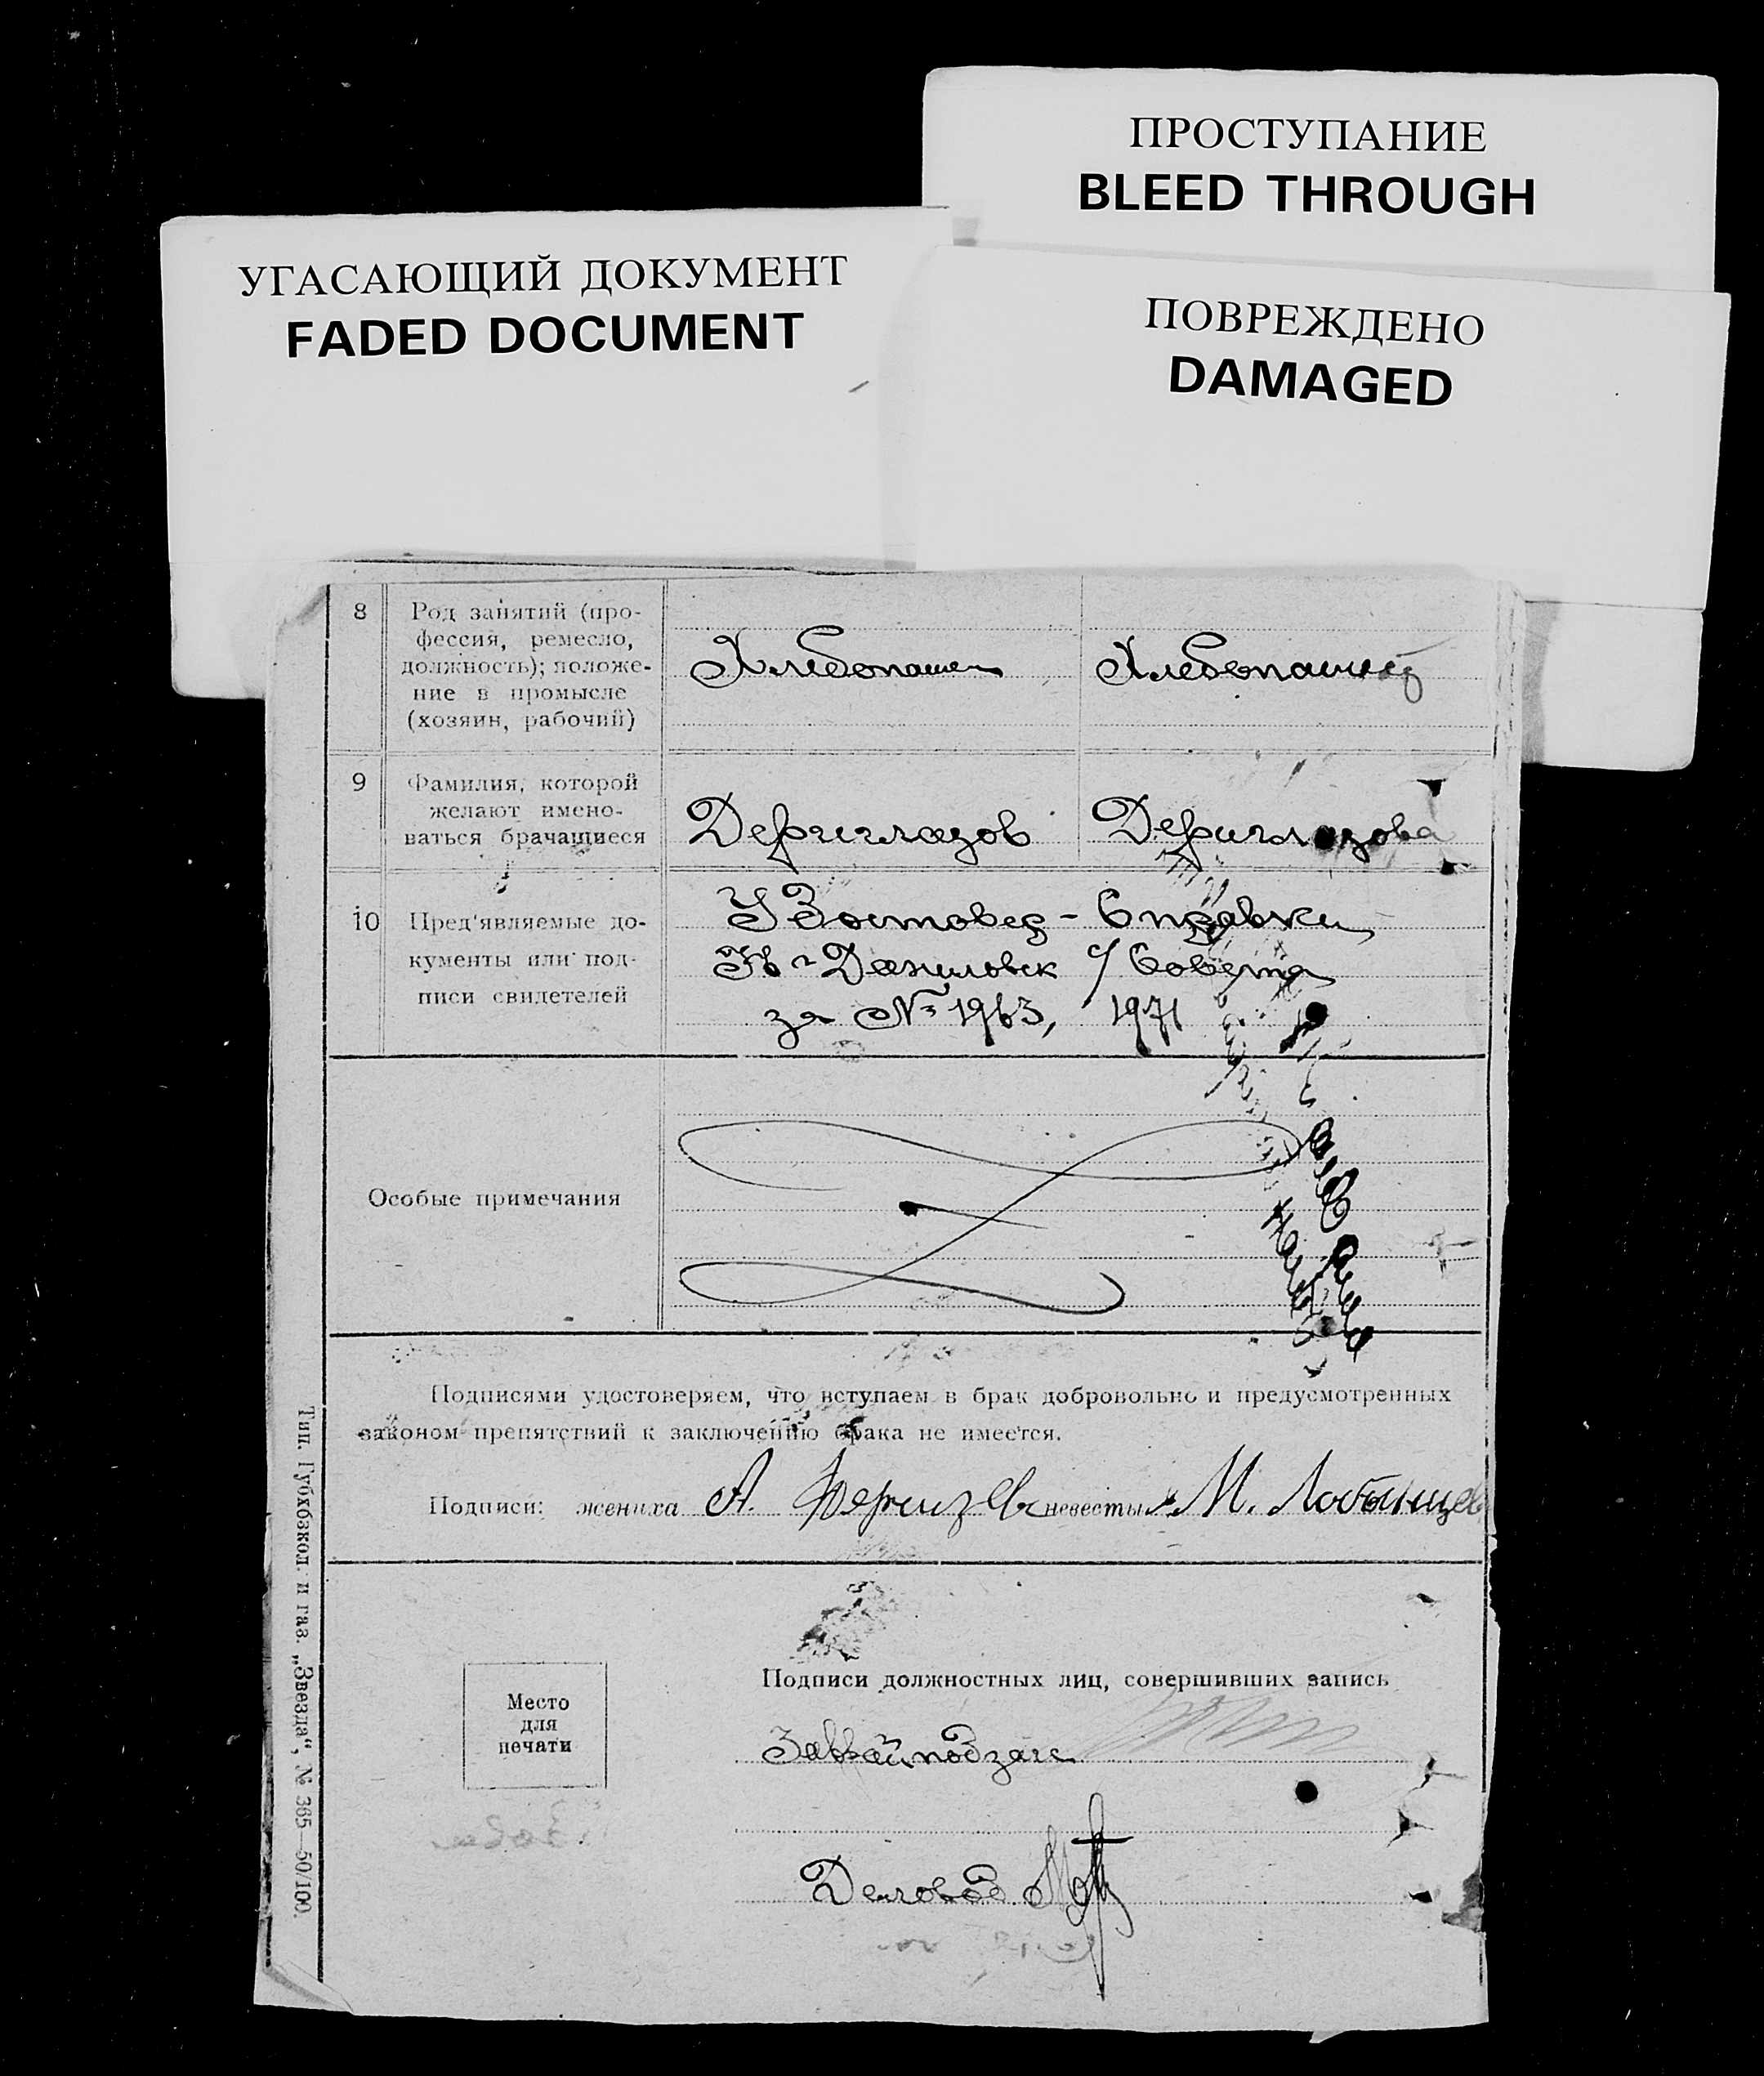 ПРОСТУПАНИЕ
BLEED THROUGH
УГАСАЮЩИЙ ДОКУМЕНТ
FADED DOCUMENT
ПОВРЕЖДЕНО
DAMAGED
8 Род занятий (про-
фессия, ремесло,
должность); положе-
ние в промысле
(хозяин, рабочий)
Хлебопашец Хлебопашец
9 Фамилия, которой
желают имено-
ваться брачащиеся
Дериглазов Дериглазова
10 Пред'являемые до-
кументы или под-
писи свидетелей
Удостовер - Справки
Даниловск с/Совета
за № 1963, 1971
Особые примечания
Подписями удостоверяем, что вступаем в брак добровольно и предусмотренных
законом препятствий к заключению брака не имеется.
Подписи: жениха А. невесты М. Лобынцев
Место
для
печати
Подписи должностных лиц, совершивших запись
Заврайподзагс
Деловод
Тип. Губкозкол. и газ. „Звезда“, № 365—50/100.